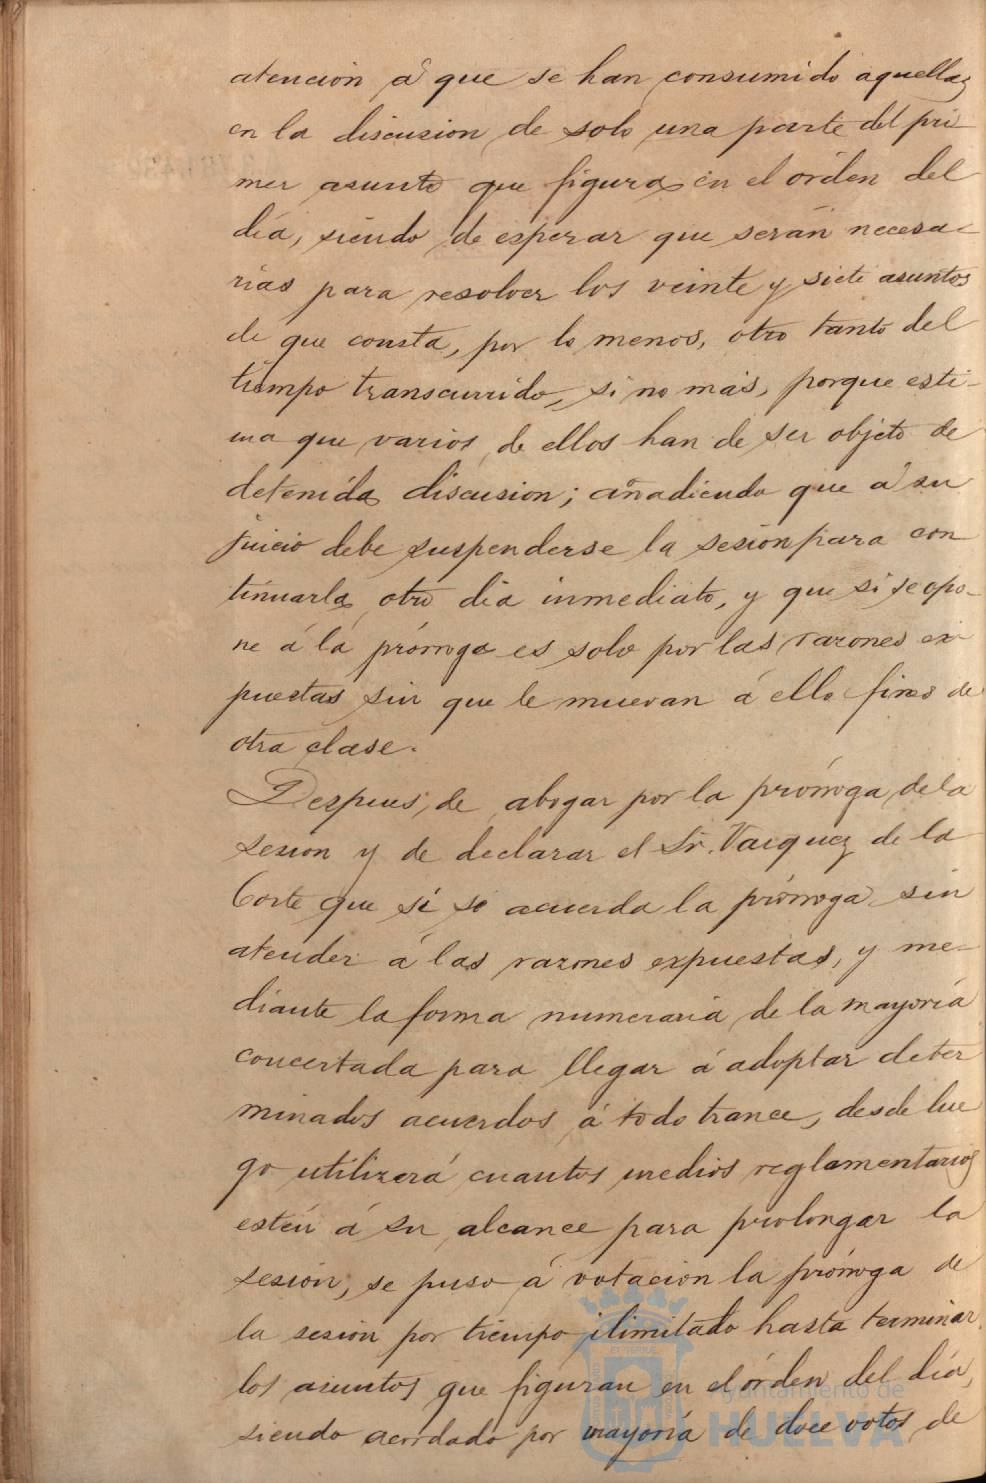 atención á que se han consumido aquellas
en la discusion de solo una parte del pri-
mer asunto que figura en el órden del
día, siendo de esperar que serán necesa-
rias para resolver los veinte y siete asuntos
de que consta, por lo menos, otro tanto del
tiempo transcurrido, si no más, porque esti-
ma que varios de ellos han de ser objeto de
detenida discusion; añadiendo que á su
juicio debe suspenderse la sesión para con
tinuarla otro dia inmediato, y que si se opo-
ne á la prórroga es solo por las razones ex
puestas sin que le muevan á ello fines de
otra clase.
Despues, de abogar por la prórroga de la
sesion y de declarar el Sr. Vazquez de la
Corte que si se acuerda la prórroga sin
atender á las razones expuestas, y me-
diante la forma numeraria de la mayoría
concertada para llegar á adoptar deter
minados acuerdos á todo trance, desde lue
go utilizará cuantos medios reglamentarios
estén á su alcance para prolongar la
sesión, se puso á votacion la prórroga de
la sesión por tiempo ilimitado hasta terminar
los asuntos que figuran en el órden del día,
siendo acordado por mayoría de doce votos, de
Ayuntamiento de
HUELVA